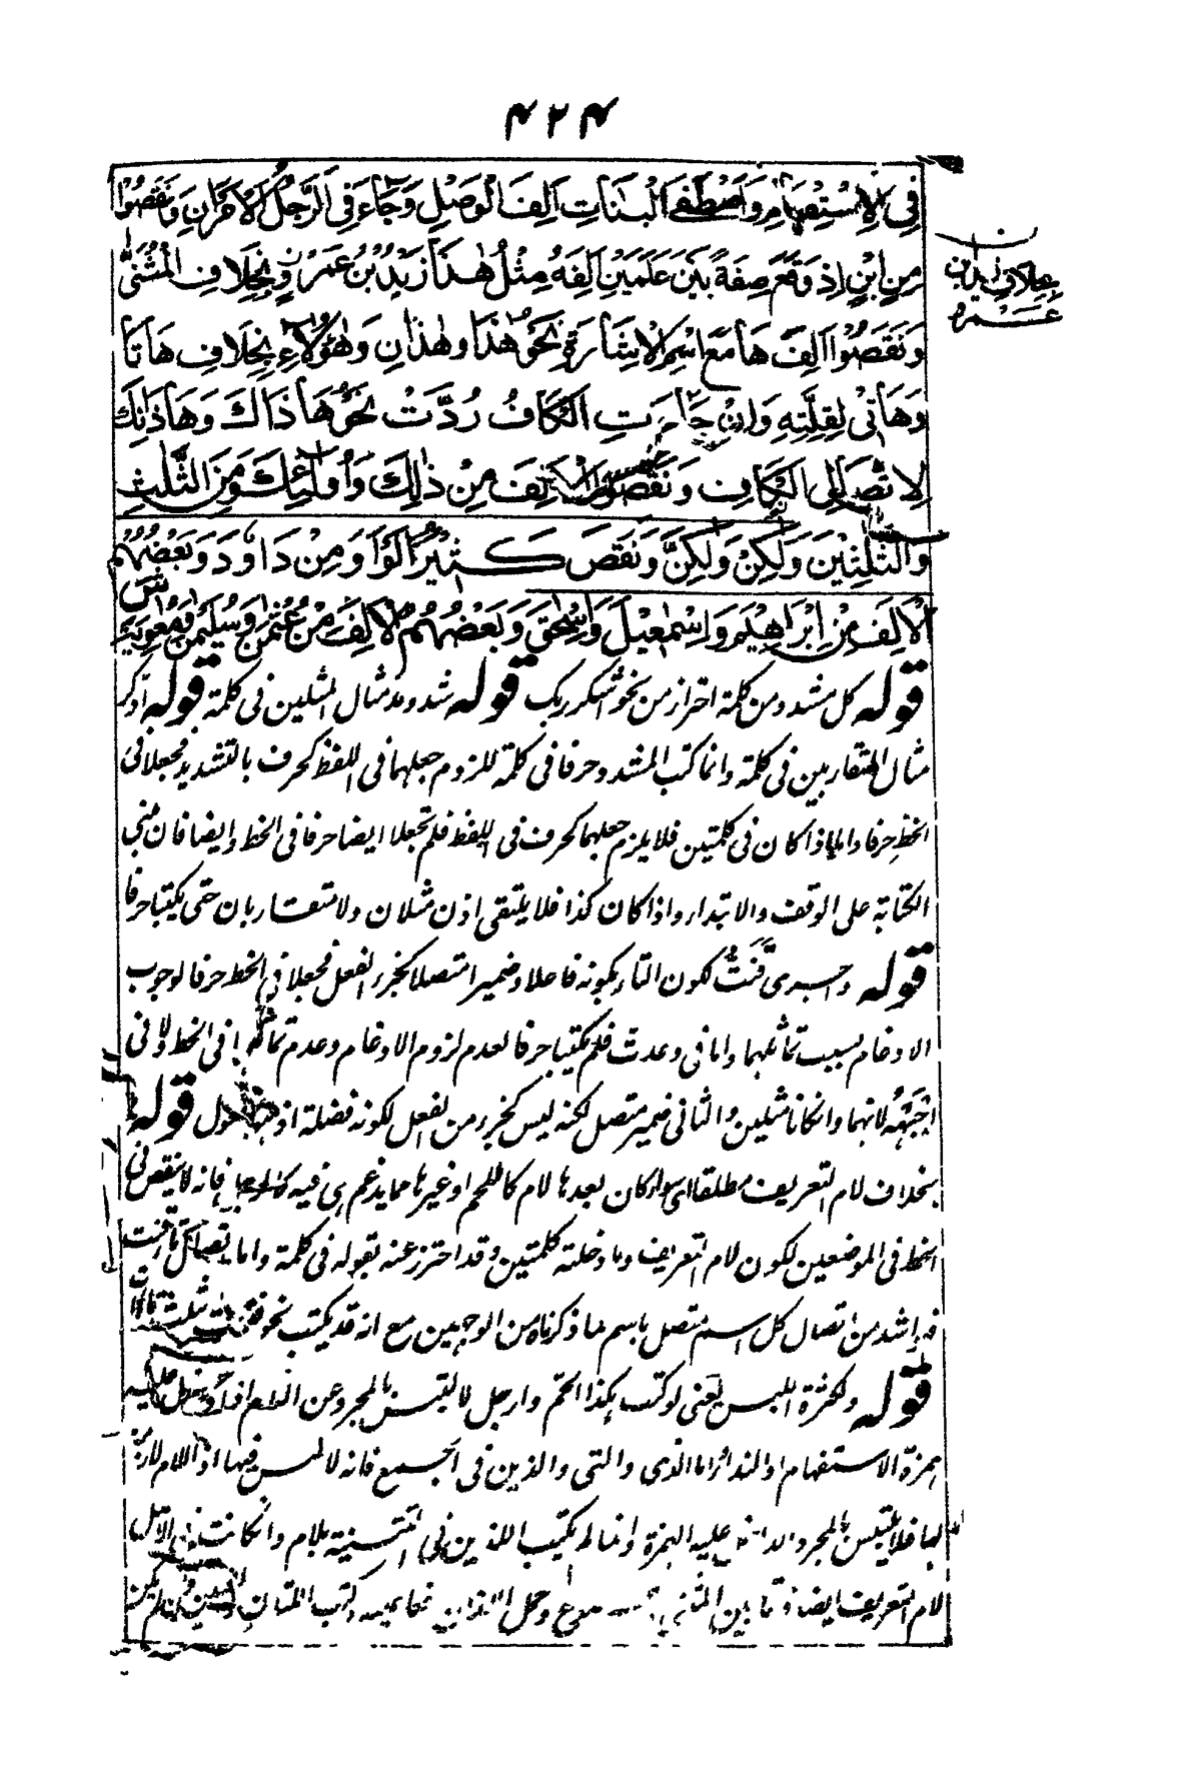 ۴۲۴
فِي الْاِسْتِفْهَامِ وَاَصْطَفَى الْبَنَاتِ اَلِفَ الْوَصْلِ وَجَاءَ فِي الرَّجُلُ الْاَمْرَانِ وَنَقَصُوْا
مِنِ ابْنٍ اِذْ وَقَعَ صِفَةً بَيْنَ عَلَمَيْنِ اَلِفَهُ مِثْلُ هٰذَا زَيْدُ بْنُ عَمْرٍو بِخِلَافِ الْمُثَنّٰى
وَنَقَصُوْا اَلِفَ هَا مَعَ اسْمِ الْاِشَارَةِ نَحْوُ هٰذَا وهٰذَانِ وَهٰؤُلَاءِ بِخِلَافِ هَاتَا
وَهَاتِيْ لِقِلَّتِهِ وَاِنْ جَاءَتِ الْكَافُ رُدَّتْ نَحْوُ هَا ذَاكَ وَهَاذَانِكَ
لِاتِّصَالِ الْكَافِ وَنَقَصُوا الْاَلِفَ مِنْ ذٰلِكَ وَاُولٰئِكَ وَمِنَ الثَّلٰثِ
وَالثَّلٰثِيْنَ وَلٰكِنْ وَلٰكِنَّ وَنَقَصَ كَثِيْرٌ الْوَاوَ مِنْ دَاوٗدَ وَبَعْضُهُمْ
الْاَلِفَ مِنْ اِبْرٰهِيْمَ وَاِسْمٰعِيْلَ وَاِسْحٰقَ وَبَعْضُهُمْ الْاَلِفَ مِنْ عُثْمٰنَ وَسُلَيْمٰنَ وَمُعٰوِيَةَ
بخلاف زيد ابن
عمرو
ش
قوله كل مشدد من كلمة احتراز من نحو اشكر ربك قوله شدد ومد مثال المثلين في كلمة قوله ادكر
مثال المتقاربين في كلمة وانما كتب المشدد حرفا في كلمة للزوم جعلهما في اللفظ كحرف بالتشديد فجعلا في
الخط حرفا واما اذا كان في كلمتين فلا يلزم جعلهما كحرف في اللفظ فلم تجعلا ايضا حرفا في الخط وايضا فان مبنى
الكتابة على الوقف والابتداء واذا كان كذا فلا يلتقى اذن مثلان ولا متقاربان حتى يكتبا حرفا
قوله واجرى قَتَتُّ لكون التاء بكونه فاعلا وضميرا متصلا كجزء الفعل فجعلا في الخط حرفا لوجوب
الادغام بسبب تماثلهما واما في وعدت فلم يكتبا حرفا لعدم لزوم الادغام وعدم تماثلهما في الخط ولا في
اجْبَهْهُ لانهما وان كانا مثلين والثاني ضمير متصل لكنه ليس كجزء من الفعل لكونه فضلة اذ هو مفعول قوله
بخلاف لام التعريف مطلقا اى سواء كان بعدها لام كاللحم او غيرها مما يدغم فيه كالرجل فانه لا ينقص في
الخط في الموضعين لكون لام التعريف وما دخلته كلمتين وقد احترز عنه بقوله في كلمة واما اتصال تاء قتت
فهو اشد من اتصال كل اسم متصل باسم لما ذكرناه من الوجهين مع انه قد يكتب نحو
قوله ولكثرة اللبس يعنى لو كتب هكذا الحم وارجل لالتبس بالمجرد عن اللام اذا دخل عليه
همزة الاستفهام او النداء اما الذى والتى والذين في الجمع فانه لا لبس فيها اذ اللام لازمة
لها فلا يلتبس بالمجرد الداخل عليه الهمزة وانما لم يكتب اللذين في التثنية بلام وان كانت في الاصل
لام التعريف ايضا فرقا بين المثنى والمجموع وحمل اللذان عليه وكتب اللتان